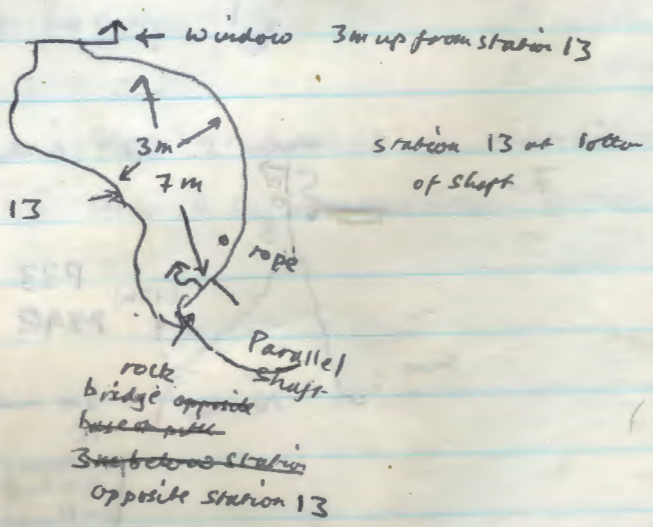 ← window 3m up from station 13
3m
7m
station 13 at bottom
of shaft
13
rope
Parallel
shaft
rock
bridge opposite
3m below station
opposite station 13